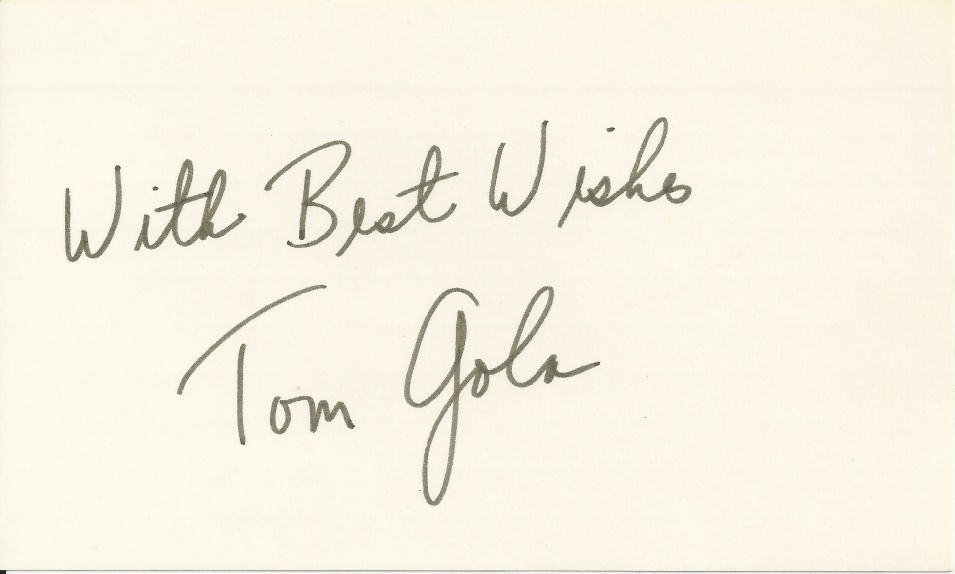 With Best Wishes
Tom Gola